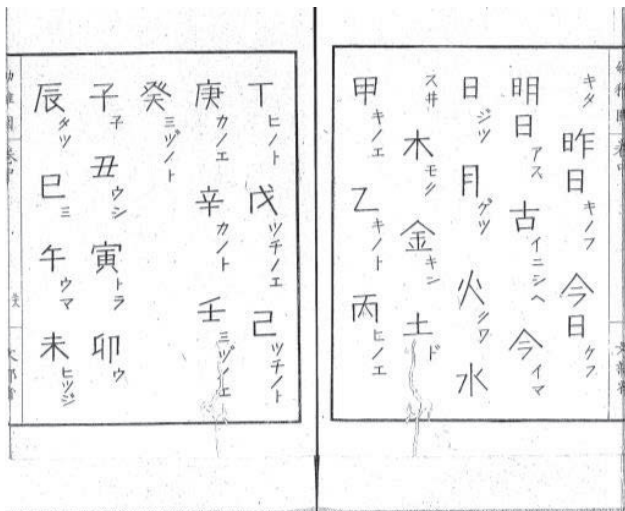 キタ 昨日 キノフ 今日 ケフ
明日 アス 古 イニシヘ 今 イマ
日 ジツ 月 ゲツ 火 クワ 水
スヰ 木 モク 金 キン 土 ド
甲 キノエ 乙 キノト 丙 ヒノエ
丁 ヒノト 戊 ツチノエ 己 ツチノト
庚 カノエ 辛 カノト 壬 ミヅノエ
癸 ミヅノト
子 子 丑 ウシ 寅 トラ 卯 ウ
辰 タツ 巳 ミ 午 ウマ 未 ヒツジ